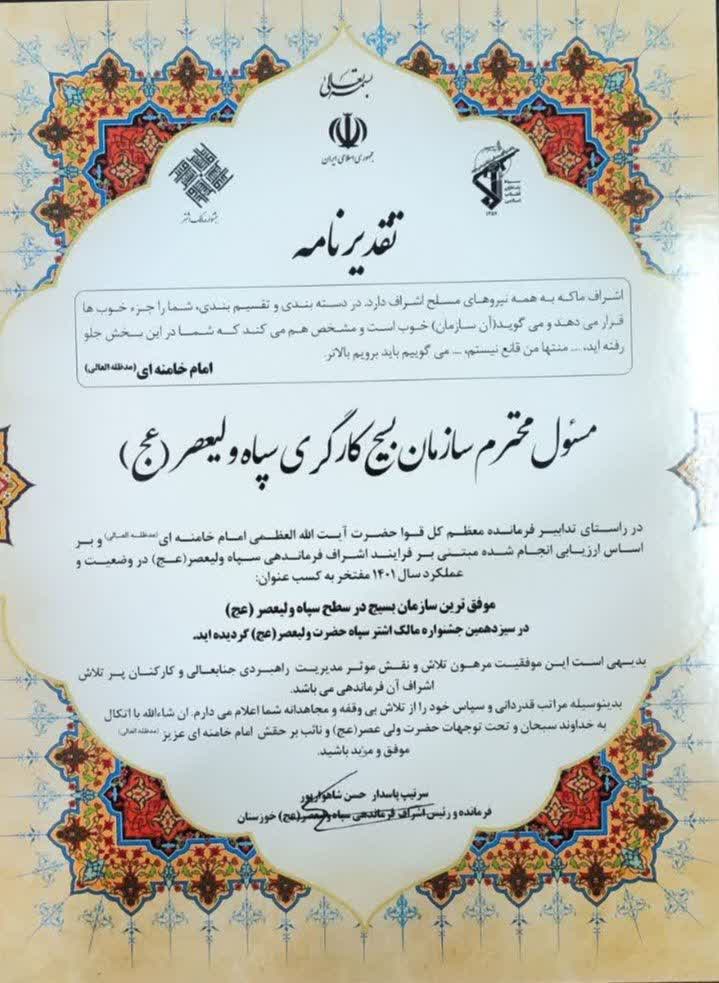 بسمه تعالی
جمهوری اسلامی ایران
سپاه
پاسداران
انقلاب
اسلامی
۱۳۵۷
جشنواره مالک اشتر
تقدیرنامه
اشراف ماکه به همه نیروهای مسلح اشراف دارد، در دسته بندی و تقسیم بندی، شما را جزء خوب ها
قرار می دهد و می گوید(آن سازمان) خوب است و مشخص هم می کند که شما در این بخش جلو
رفته اید، ... منتها من قانع نیستم، ... می گوییم باید برویم بالاتر.
امام خامنه ای (مدظله العالی)
مسئول محترم سازمان بسیج کارگری سپاه ولیعصر (عج)
در راستای تدابیر فرمانده معظم کل قوا حضرت آیت الله العظمی امام خامنه ای (مدظله العالی) و بر
اساس ارزیابی انجام شده مبتنی بر فرایند اشراف فرماندهی سپاه ولیعصر(عج) در وضعیت و
عملکرد سال ۱۴۰۱ مفتخر به کسب عنوان:
موفق ترین سازمان بسیج در سطح سپاه ولیعصر (عج)
در سیزدهمین جشنواره مالک اشتر سپاه حضرت ولیعصر(عج) گردیده اید.
بدیهی است این موفقیت مرهون تلاش و نقش موثر مدیریت راهبردی جنابعالی و کارکنان پر تلاش
اشراف آن فرماندهی می باشد.
بدینوسیله مراتب قدردانی و سپاس خود را از تلاش بی وقفه و مجاهدانه شما اعلام می دارم. ان شاءالله با اتکال
به خداوند سبحان و تحت توجهات حضرت ولی عصر(عج) و نائب بر حقش امام خامنه ای عزیز (مدظله العالی)
موفق و مزید باشید.
سرتیپ پاسدار حسن شاهوارپور
فرمانده و رئیس اشراف فرماندهی سپاه ولیعصر(عج) خوزستان